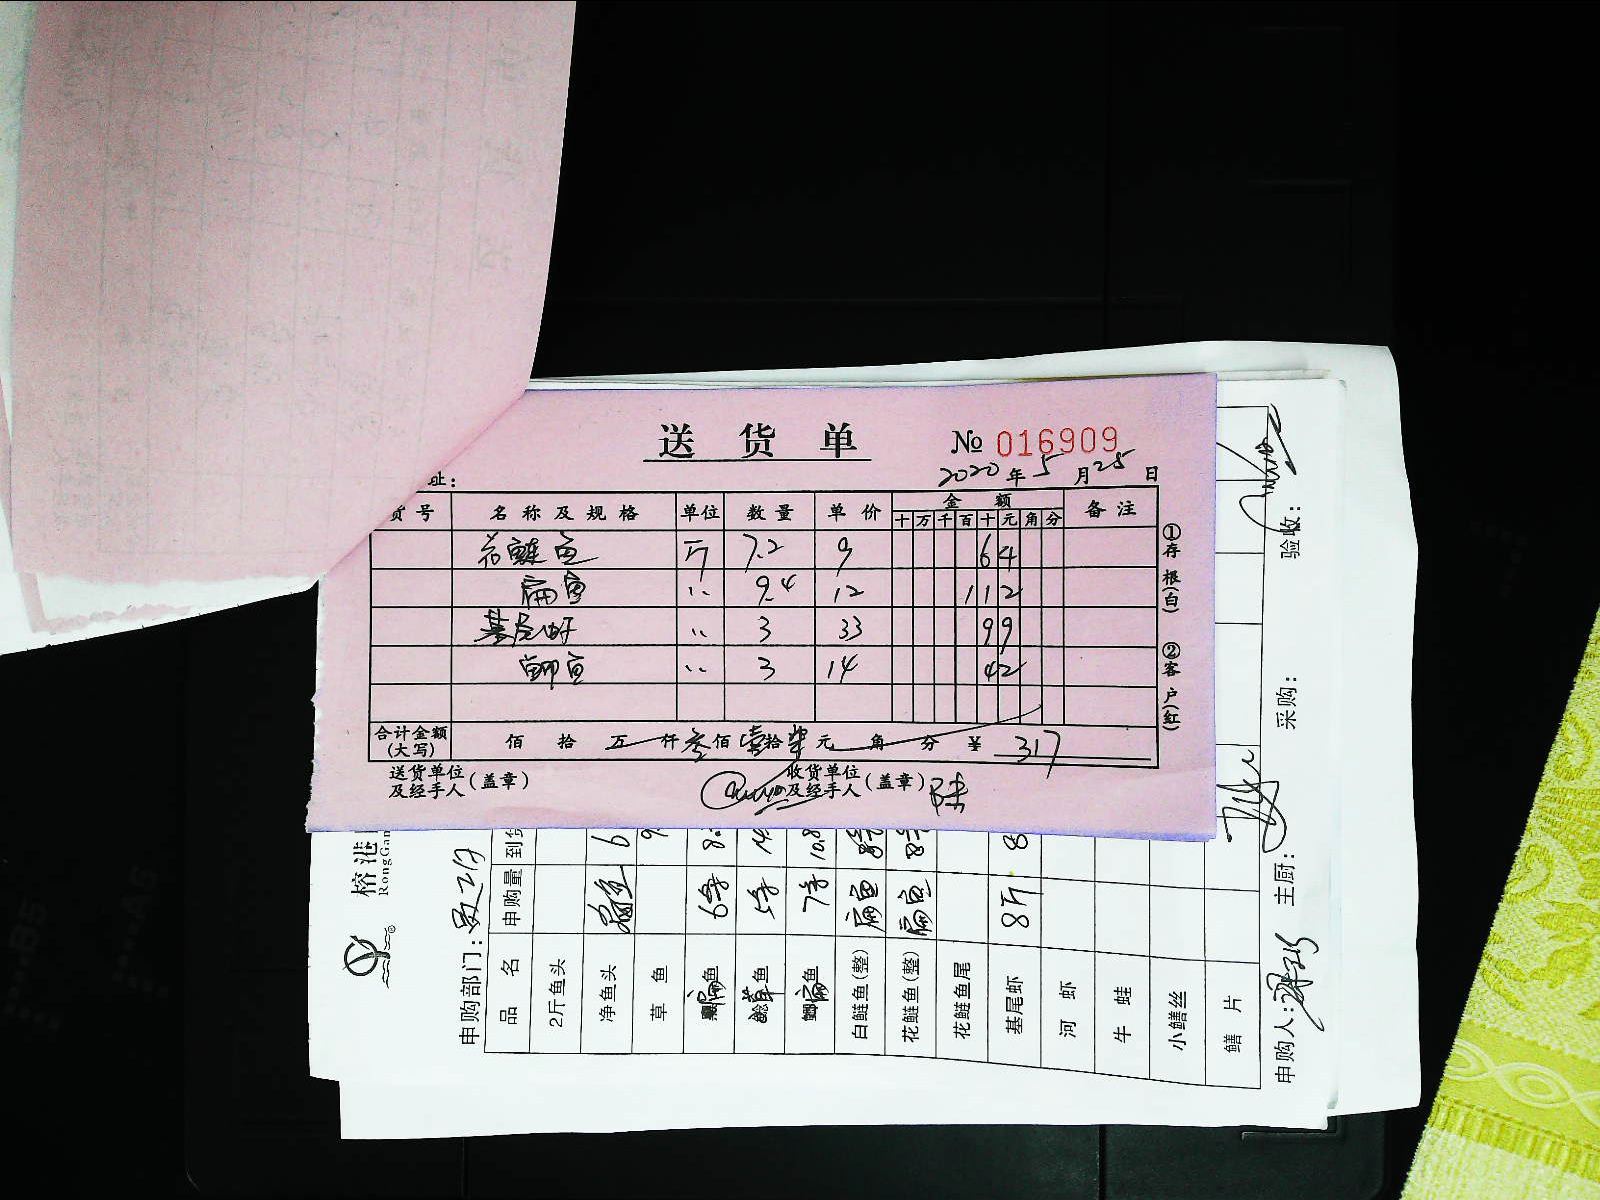 送货单 № 016909
2020年5月25日
址：
货号 名称及规格 单位 数量 单价 金额 备注
十 万 千 百 十 元 角 分
花鲢鱼 斤 7.2 9 64
扁鱼 〃 9.4 12 112
基尾虾 〃 3 33 99
鲫鱼 〃 3 14 42
合计金额(大写) 佰 拾 万 仟 叁佰 壹拾 柒元 角 分 ¥ 317
送货单位及经手人(盖章) 收货单位及经手人(盖章) 陆
①存根(白) ②客户(红)
榕港
RongGan
申购部门：
品名 申购量 到货
2斤鱼头
净鱼头 6
草鱼 9
鱼 6斤 8.
鱼 5斤 14.
扁鱼 7斤 10.8
白鲢鱼(整) 扁鱼
花鲢鱼(整) 扁鱼
花鲢鱼尾
基尾虾 8斤 8
河虾
牛蛙
小鳝丝
鳝片
申购人： 主厨： 采购： 验收：